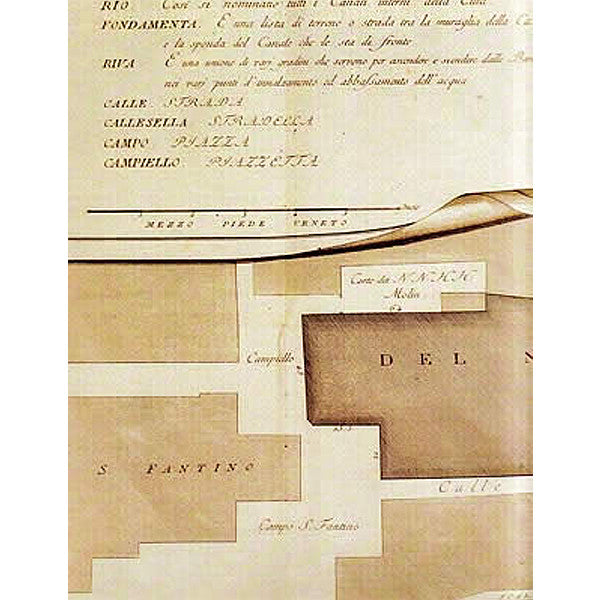 RIO Così si nominano tutti i Canali interni della Città
FONDAMENTA. È una lista di terreno o strada tra la muraglia della
e la sponda del Canale che le sta di fronte
RIVA È una unione di varj gradini che servono per ascendere e scendere dalle
nei varj punti d'innalzamento ed abbassamento dell'acqua
CALLE STRADA
CALLESELLA STRADELLA
CAMPO PIAZZA
CAMPIELLO PIAZZETTA
MEZZO PIEDE VENETO
Corte dei NNHH
Molin
Campiello
DEL
S FANTINO
Calle
Campo S. Fantino